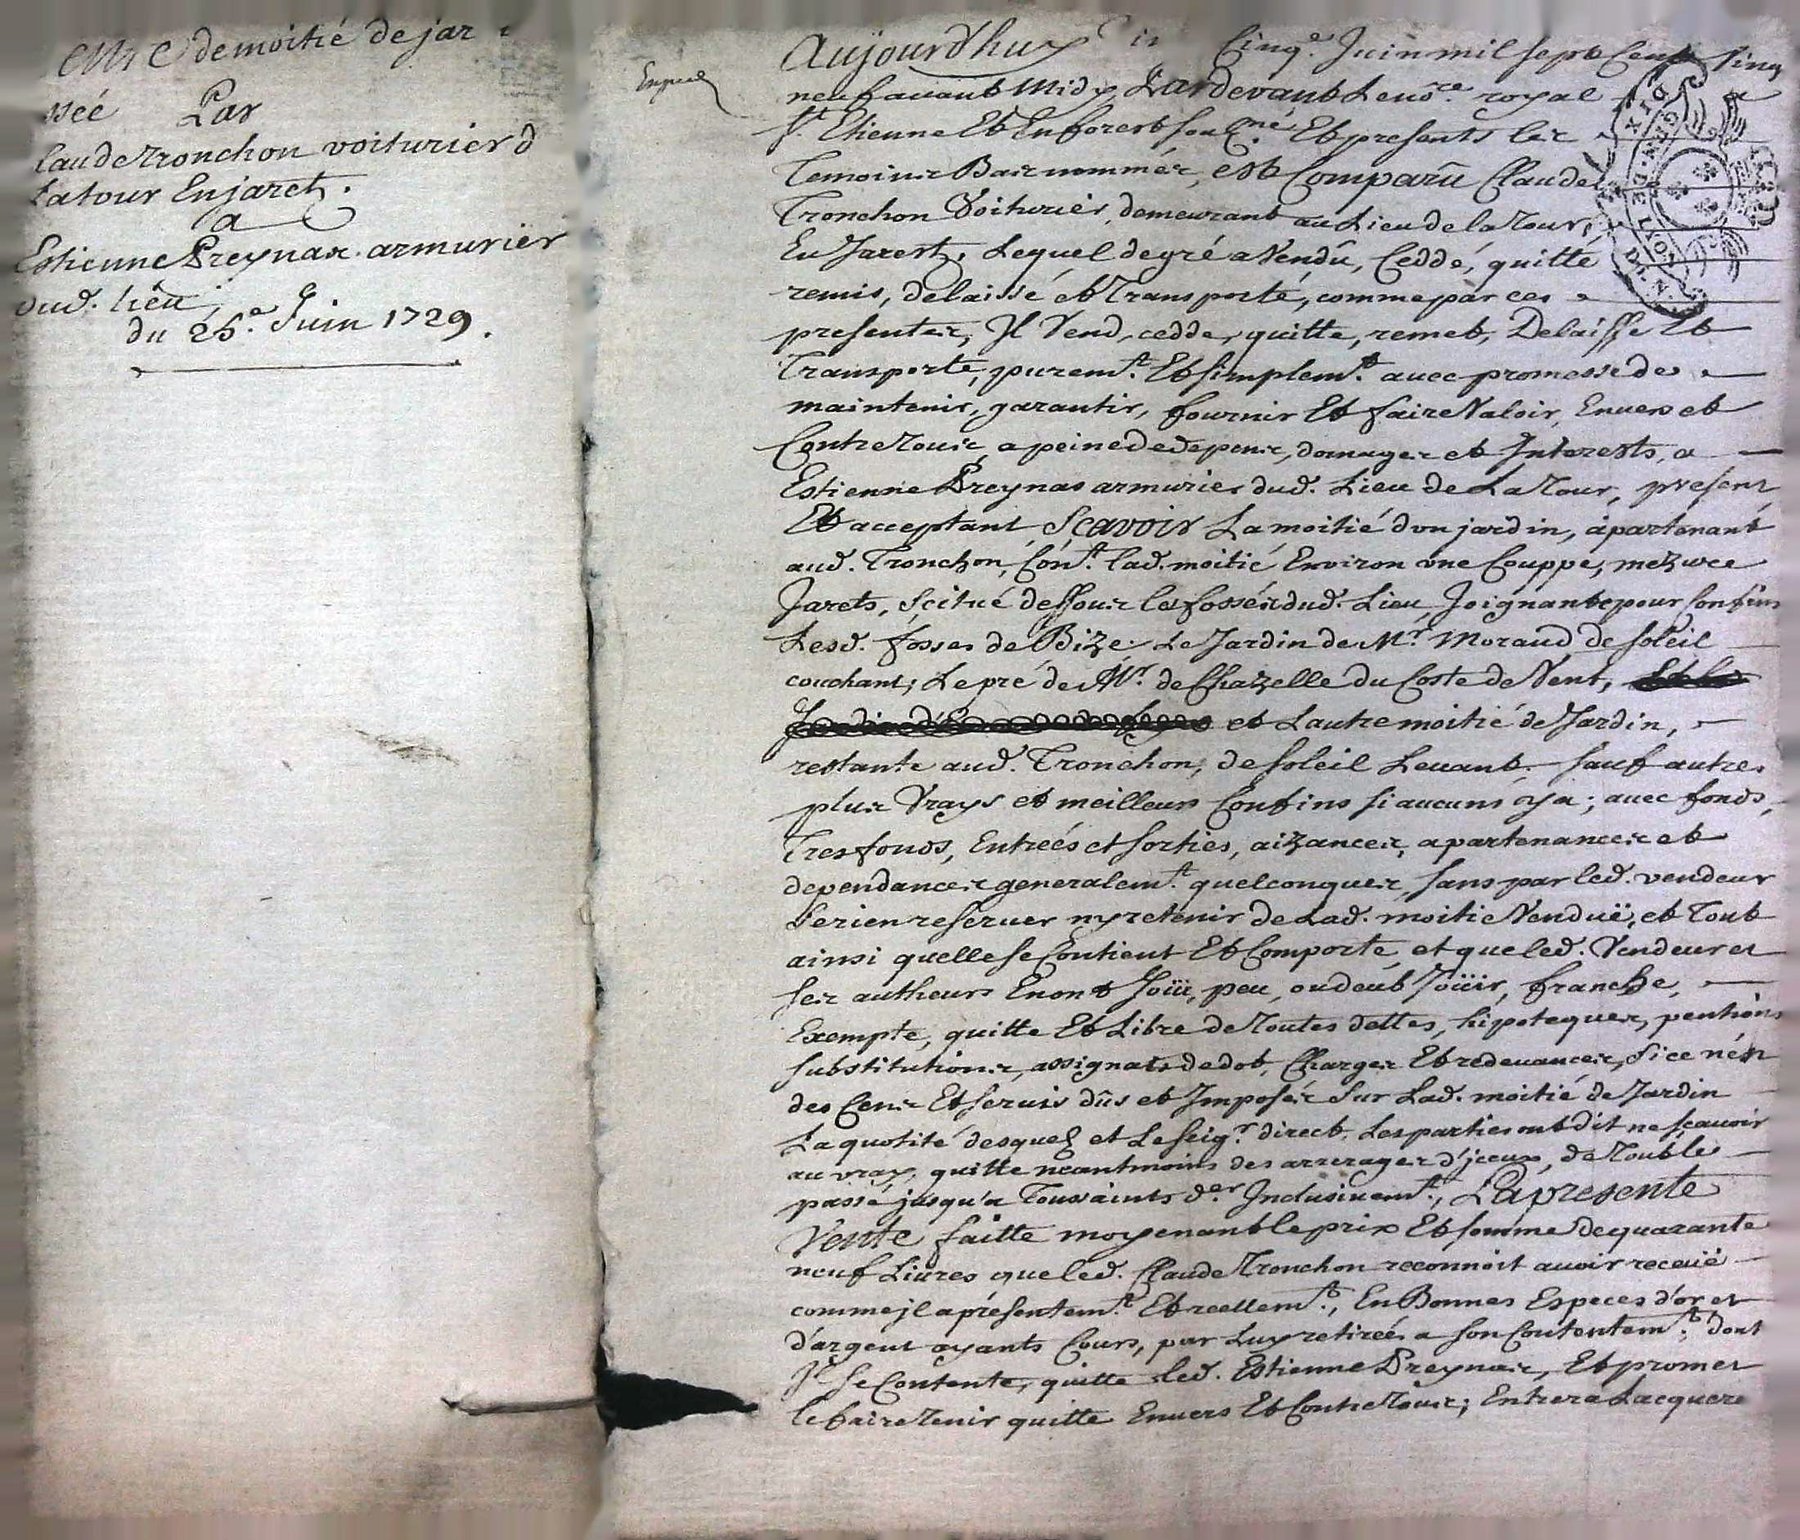 demoitié de jar
ssée Par
laude Tronchon voiturier d
Latour Enjaret.
a
Estienne Preynas armurier
dud. lieu
du 25.e Juin 1729.
Aujourd'huy Cinq.e Juin mil sept Cent Vingt
neuf avant Midy, Pardevant Le no.re royal
St. Etienne Et Enforest sousné. Et presents les
Temoins Bas nommés, est Comparû Claude
Tronchon Voiturier, demeurant au Lieu de la Tour,
En Jarest, Lequel de gré a Vendû, Ceddé, quitté
remis, delaissé et Transporté, comme par ces
presentes, Il Vend, cedde, quitte, remet, Delaisse Et
Transporte, purem.t Et simplem.t avec promesse de
maintenir, garantir, fournir Et faire Valoir, Envers et
Contre Tous, a peine de depens, domages et Interests, a
Estienne Preynas armurier dud. Lieu de La Tour, present
Et acceptant, Scavoir La moitié d'un jardin, apartenant
aud. Tronchon, Con.t lad. moitié Environ une Couppe, mezure
Jarets, scitué dessous les fossés dud. Lieu, Joignant pour Confins
Lesd. fosses de Bize. Le Jardin de Mr. Moraud de soleil
couchant; Le pré de Mr. de Chazelle du Coste de Vent,
et Lautre moitié de Jardin,
restante aud. Tronchon, de soleil Levant. sauf autres
plus Vrays et meilleurs Confins si aucuns oy a; avec fonds,
Tresfonds, Entreés et sorties, aizances, apartenances et
dependances generalem.t quelconques, sans par led. vendeur
se rien reserver ny retenir de Lad. moitié Venduë, et Tout
ainsi quelle se Contient Et Comporte, et que led. Vendeur et
ses autheurs En ont Joüi, peu, ou deub Joüir, franche,
Exempte, quitte Et Libre de Toutes dettes, hipoteques, pentions
substitutions, assignats de dot, Charges Et redevances, si ce n'est
des Cens Et servis dûs et Imposés sur Lad. moitié de Jardin
La quotité desquels et Le seig.r direct. Les parties ont dit ne sçavoir
au vray, quitte neantmoins des arrerages d'jceux, de Toubles
passé jusqu'a Toussaints d.er Inclusivem.t, La presente
Vente faitte moyenant le prix Et somme de quarante
neuf Livres que led. Claude Tronchon reconnoit avoir receuë
comme jl a présentem.t Et reellem.t, En Bonnes Especes d'or et
d'argent ayants Cours, par Luy retirées a son Contentem.t dont
Jl se Contente, quitte led. Estienne Preynas, Et promet
le faire Tenir quitte Envers Et Contre Tous; Entrera Lacquere